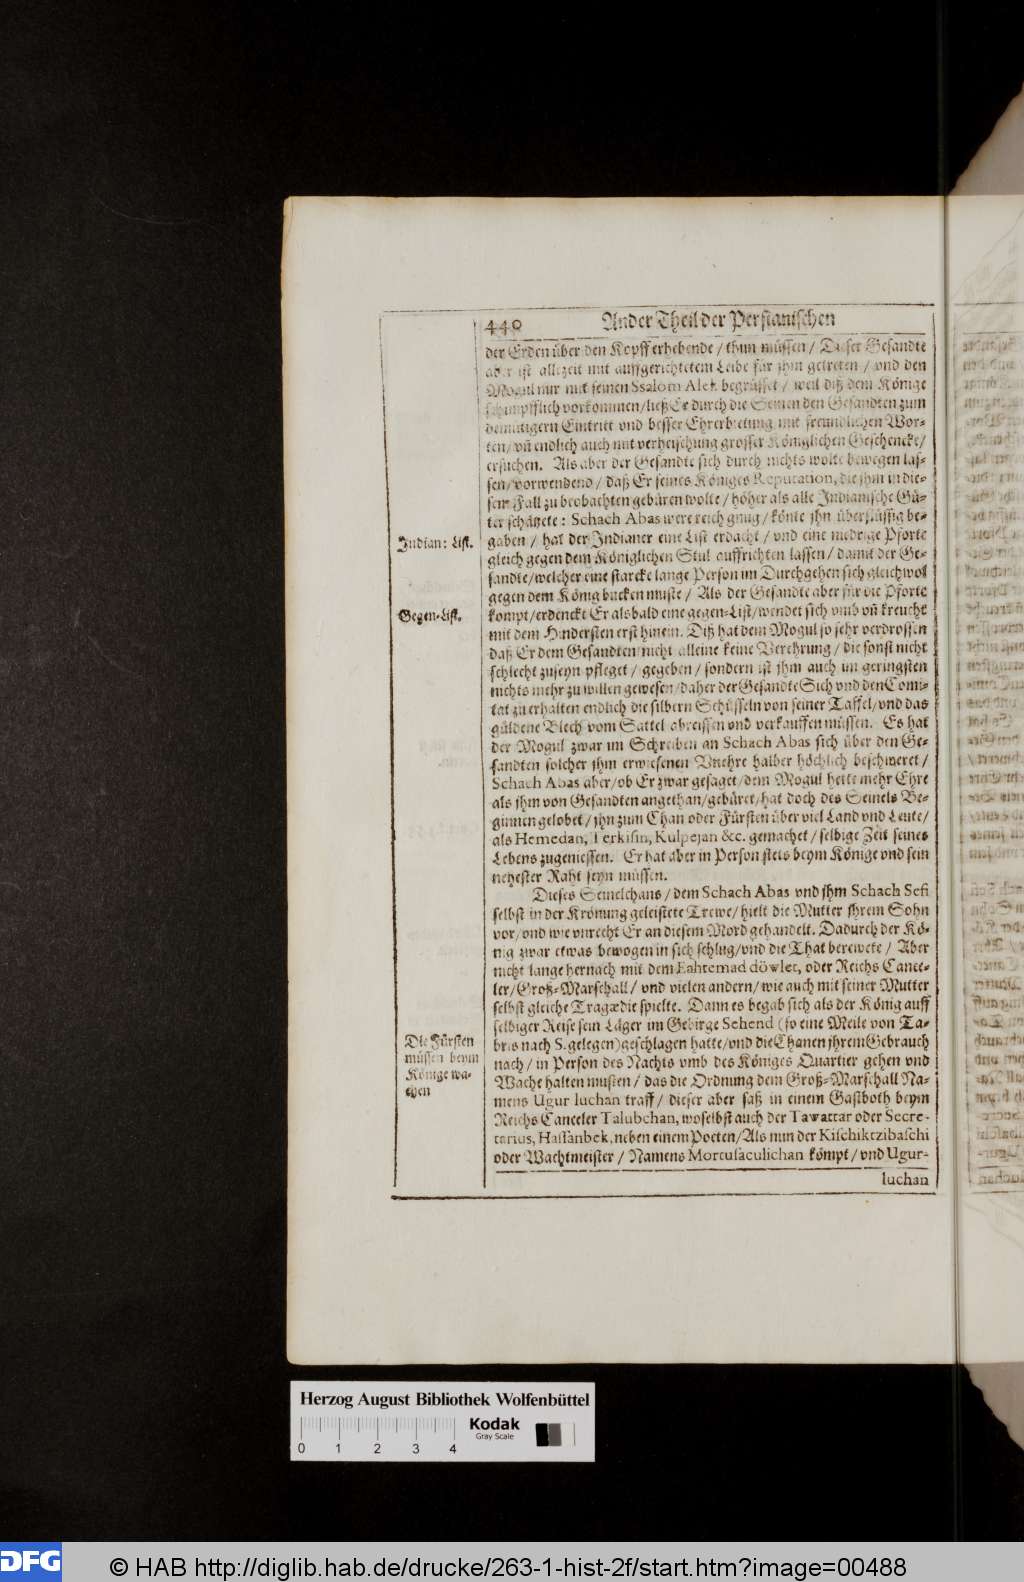 440 Ander Theil der Persianischen
der Erden über den Kopff erhebende / thun müssen / Dieser Gesandte
aber ist allezeit mit auffgerichtetem Leibe für jhm getreten / und den
Mogul nur mit seinen Ssalom Alek begrüsset / weil diß dem Könige
schimpfflich vorkommen / ließ Er durch die Seinen den Gesandten zum
demütigern Eintritt vnd besser Ehrerbietung mit freundlichen Wor-
ten / vñ endlich auch mit verheischung grosser Königlichen Geschencke /
ersuchen. Als aber der Gesandte sich durch nichts wolte bewegen las-
sen / vorwendend / daß Er seines Königes Reputation, die jhm in die-
sem Fall zu beobachten gebüren wolte / höher als alle Indianische Gü-
ter schätzete: Schach Abas were reich gnug / könte jhn überflüssig be-
Indian: List.
gaben / hat der Indianer eine List erdacht / vnd eine niedrige Pforte
gleich gegen dem Königlichen Stul auffrichten lassen / damit der Ge-
sandte / welcher eine starcke lange Person im Durchgehen sich gleichwol
gegen dem König bucken muste / Als der Gesandte aber für die Pforte
Gegen-List.
kompt / erdenckt Er alsbald eine gegen-List / wendet sich vmb vñ kreucht
mit dem Hindersten erst hinein. Diß hat dem Mogul so sehr verdrossen
daß Er dem Gesandten nicht alleine keine Verehrung / die sonst nicht
schlecht zuseyn pfleget / gegeben / sondern ist jhm auch im geringsten
nichts mehr zu willen gewesen / daher der Gesandte Sich vnd den Comi-
tat zu erhalten endlich die silbern Schüsseln von seiner Taffel / vnd das
güldene Blech vom Sattel abreissen vnd verkauffen müssen. Es hat
der Mogul zwar im Schreiben an Schach Abas sich über den Ge-
sandten solcher jhm erwiesenen Vnehre halber höchlich beschweret /
Schach Abas aber / ob Er zwar gesaget / dem Mogul hette mehr Ehre
als jhm von Gesandten angethan / gebüret / hat doch des Seinels Be-
ginnen gelobet / jhn zum Chan oder Fürsten über viel Land vnd Leute /
als Hemedan, Terkisin, Kulpejan &c. gemachet / selbige Zeit seines
Lebens zugeniessen. Er hat aber in Person stets beym Könige vnd sein
nehester Raht seyn müssen.
Dieses Seinelchans / dem Schach Abas vnd jhm Schach Sefi
selbst in der Krönung geleistete Trewe / hielt die Mutter jhrem Sohn
vor / vnd wie vnrecht Er an diesem Mord gehandelt. Dadurch der Kö-
nig zwar etwas bewogen in sich schlug / vnd die That berewete / Aber
nicht lange hernach mit dem Eahtemad döwlet, oder Reichs Cance-
ler / Groß-Marschall / vnd vielen andern / wie auch mit seiner Mutter
selbst gleiche Tragædie spielte. Dann es begab sich als der König auff
selbiger Reise sein Läger im Gebirge Sehend (so eine Meile von Ta-
Die Fürsten
müssen beym
Könige wa-
chen
bris nach S. gelegen) geschlagen hatte / vnd die Chanen jhrem Gebrauch
nach / in Person des Nachts vmb des Königes Quartier gehen vnd
Wache halten musten / das die Ordnung dem Groß-Marschall Na-
mens Ugur luchan traff / dieser aber saß in einem Gastboth beym
Reichs Canceler Talubchan, woselbst auch der Tawattar oder Secre-
tarius, Hassanbek, neben einem Poeten / Als nun der Kischiktzibaschi
oder Wachtmeister / Namens Mortusaculichan kömpt / vnd Ugur-
luchan
Herzog August Bibliothek Wolfenbüttel
Kodak
Gray Scale
0 1 2 3 4
DFG
© HAB http://diglib.hab.de/drucke/263-1-hist-2f/start.htm?image=00488